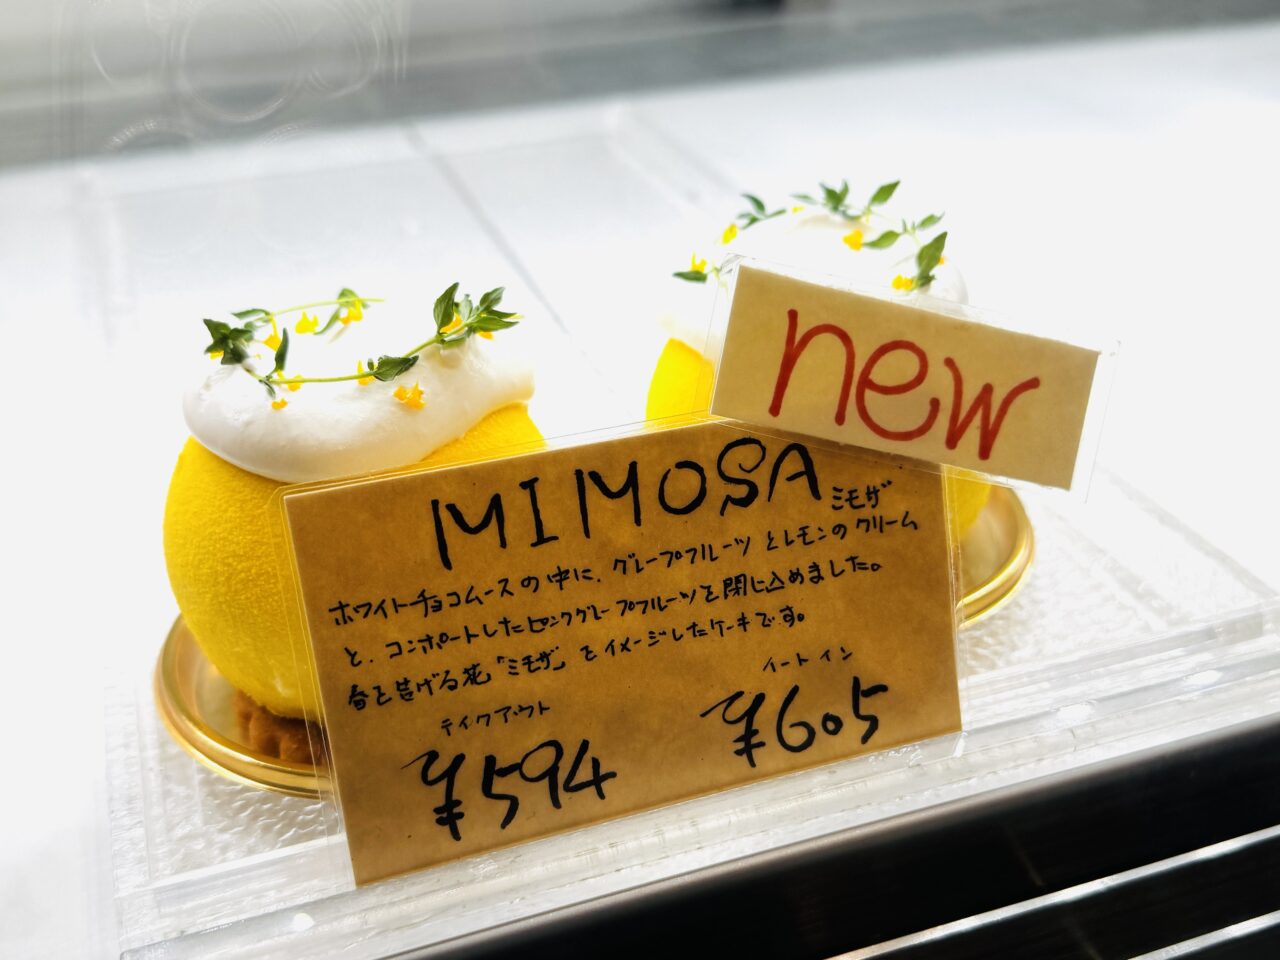 new
MIMOSA ミモザ
ホワイトチョコムースの中に、グレープフルーツとレモンのクリーム
と、コンポートしたピンクグレープフルーツを閉じ込めました。
春を告げる花「ミモザ」をイメージしたケーキです。
テイクアウト イートイン
¥594 ¥605